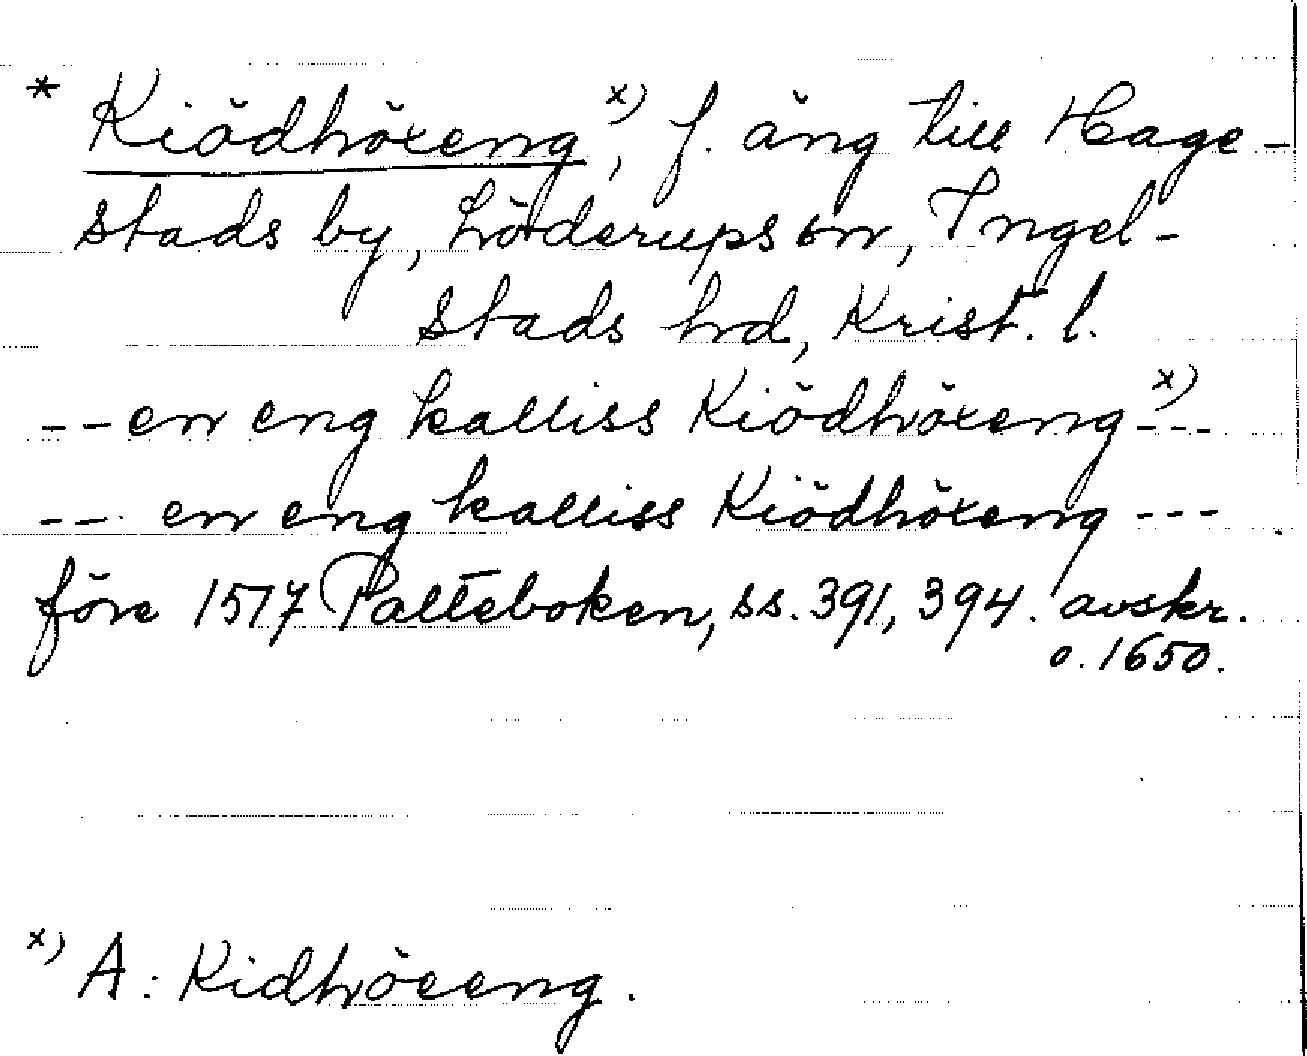 * Kiödhöxeng x), f. äng till Hage-
stads by, Löderups sn, Ingel-
stads hrd, Krist. l.
-- en eng kalliss Kiödhöxeng x) ---
-- en eng kalliss Kiödhöxeng ---
före 1517 Palteboken, ss. 391, 394. avskr.
o. 1650.
x) A: Kidhöeeng.